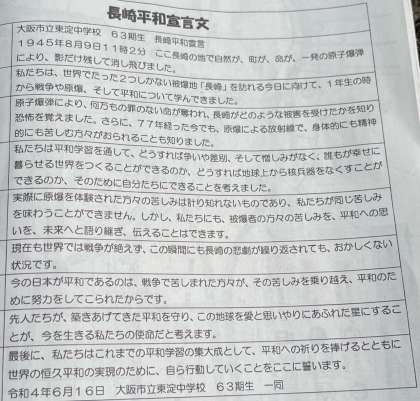 長崎平和宣言文
大阪市立東淀中学校　６３期生　長崎平和宣言
１９４５年８月９日１１時２分　ここ長崎の地で自然が、町が、命が、一発の原子爆弾
により、影だけ残して消し飛びました。
私たちは、世界でたった２つしかない被爆地「長崎」を訪れる今日に向けて、１年生の時
から戦争や原爆、そして平和について学んできました。
原子爆弾により、何万もの罪のない命が奪われ、長崎がどのような被害を受けたかを知り
恐怖を覚えました。さらに、７７年経った今でも、原爆による放射線で、身体的にも精神
的にも苦しむ方々がおられることも知りました。
私たちは平和学習を通して、どうすれば争いや差別、そして憎しみがなく、誰もが幸せに
暮らせる世界をつくることができるのか、どうすれば地球上から核兵器をなくすことが
できるのか、そのために自分たちにできることを考えました。
実際に原爆を体験された方々の苦しみは計り知れないものであり、私たちが同じ苦しみ
を味わうことができません。しかし、私たちにも、被爆者の方々の苦しみを、平和への思
いを、未来へと語り継ぎ、伝えることはできます。
現在も世界では戦争が絶えず、この瞬間にも長崎の悲劇が繰り返されても、おかしくない
状況です。
今の日本が平和であるのは、戦争で苦しまれた方々が、その苦しみを乗り越え、平和のた
めに努力をしてこられたからです。
先人たちが、築きあげてきた平和を守り、この地球を愛と思いやりにあふれた星にするこ
とが、今を生きる私たちの使命だと考えます。
最後に、私たちはこれまでの平和学習の集大成として、平和への祈りを捧げるとともに
世界の恒久平和の実現のために、自ら行動していくことをここに誓います。
令和４年６月１６日　大阪市立東淀中学校　６３期生　一同